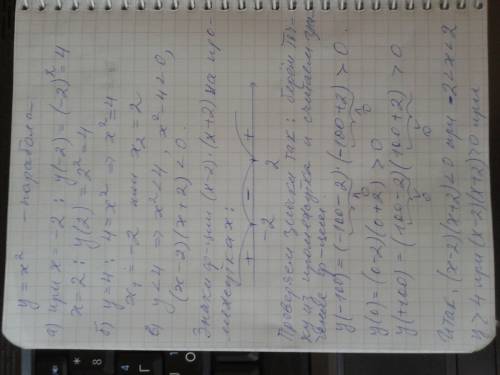 y = x² – парабола
а) при x = -2 : y(-2) = (-2)² = 4
x = 2 : y(2) = 2² = 4
б) y = 4 ; 4 = x² ⇒ x² = 4
x₁ = -2 или x₂ = 2
в) y < 4 ⇒ x² < 4 ; x² - 4 < 0,
(x-2)(x+2) < 0.
Знаки ф-ции (x-2)·(x+2) на про-
межутках:
+ - +
-2 2
Проверяем знаки так: берём точ-
ку из промежутка и считаем зна-
чение ф-ции.
y(-100) = (-100-2)(-100+2) > 0.
y(0) = (0-2)(0+2) > 0
y(+100) = (100-2)(100+2) > 0
Итак: (x-2)(x+2) < 0 при -2 < x < 2
y > 4 при (x-2)(x+2) > 0 при